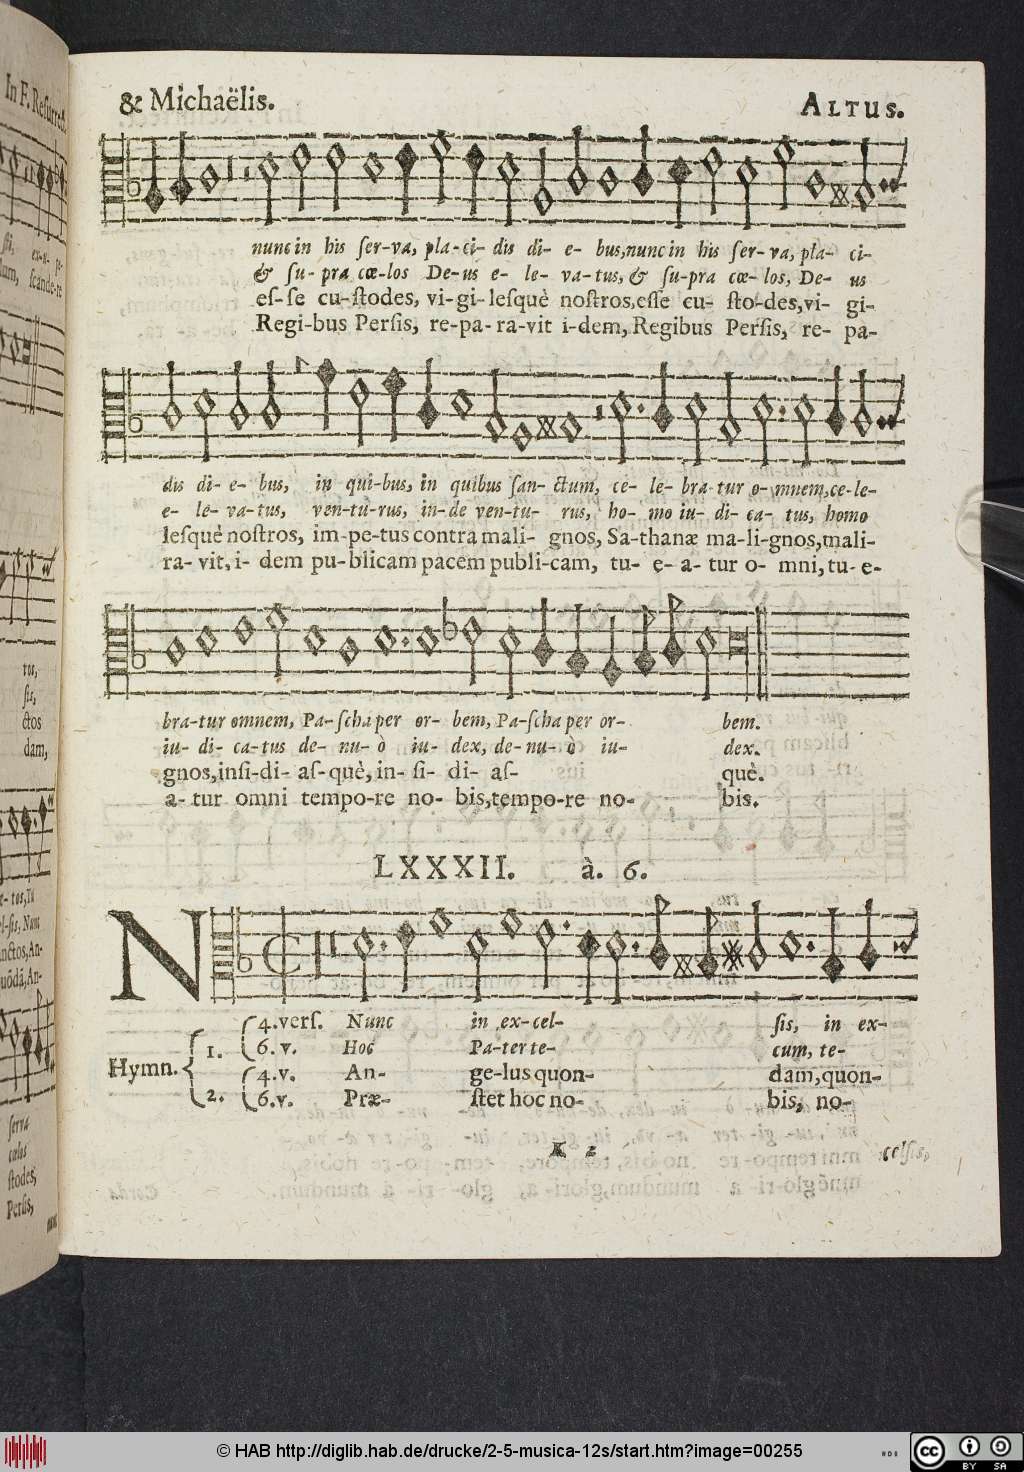 & Michaëlis.
ALTUS.
nunc in his ſer-va, pla-ci- dis di- e- bus, nunc in his ſer-va, pla- ci-
& ſu-pra cœ-los De-us e- le- va-tus, & ſu-pra cœ-los, De- us
eſ-ſe cu-ſtodes, vi-gi-leſquè noſtros, eſſe cu- ſto-des, vi- gi-
Regi-bus Perſis, re-pa-ra-vit i-dem, Regibus Perſis, re- pa-
dis di-e- bus, in qui-bus, in quibus ſan-ctum, ce-le-bra-tur o-mnem, ce-le-
e- le-va-tus, ven-tu-rus, in-de ven-tu- rus, ho- mo iu-di-ca- tus, homo
leſquè noſtros, im-pe-tus contra mali- gnos, Sa-thanæ ma-li-gnos, mali-
ra-vit, i- dem pu-blicam pacem publi-cam, tu- e-a-tur o- mni, tu-e-
bra-tur omnem, Pa-ſcha per or- bem, Pa-ſcha per or- bem.
iu-di-ca-tus de-nu-ò iu- dex, de-nu-ò iu- dex.
gnos, inſi-di- aſ-què, in- ſi- di- aſ- què.
a-tur omni tempo-re no- bis, tempo-re no- bis.
LXXXII. à. 6.
N
4. verſ. Nunc in ex-cel- ſis, in ex-
6. v. Hoc Pa-ter te- cum, te-
Hymn. 1. 2.
4. v. An- ge-lus quon- dam, quon-
6. v. Præ- ſtet hoc no- bis, no-
K 2
celſis,
In F. Reſurrect.
© HAB http://diglib.hab.de/drucke/2-5-musica-12s/start.htm?image=00255
cc BY SA